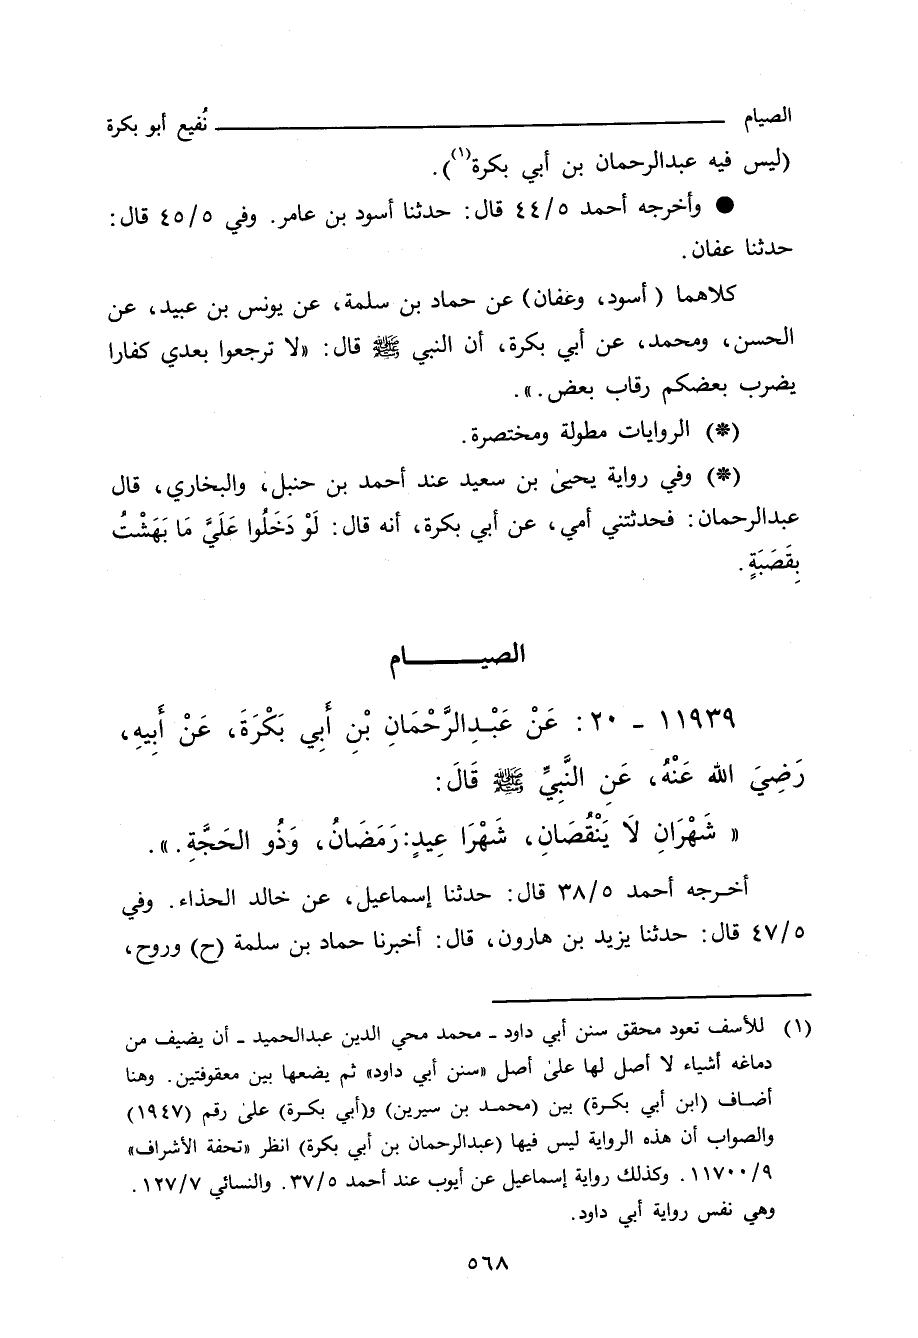 الصيام ــــــــــــ نُفيع أبو بكرة
(ليس فيه عبدالرحمان بن أبي بكرة(١)).
● وأخرجه أحمد ٤٤/٥ قال: حدثنا أسود بن عامر. وفي ٤٥/٥ قال:
حدثنا عفان.
كلاهما (أسود، وعفان) عن حماد بن سلمة، عن يونس بن عبيد، عن
الحسن، ومحمد، عن أبي بكرة، أن النبي ﷺ قال: «لا ترجعوا بعدي كفارا
يضرب بعضكم رقاب بعض.».
(*) الروايات مطولة ومختصرة.
(*) وفي رواية يحيىٰ بن سعيد عند أحمد بن حنبل، والبخاري، قال
عبدالرحمان: فحدثتني أمي، عن أبي بكرة، أنه قال: لَوْ دَخَلُوا عَلَيَّ مَا بَهَشْتُ
بِقَصَبَةٍ.
الصيـــــــام
١١٩٣٩ ـ ٢٠: عَنْ عَبْدِالرَّحْمَانِ بْنِ أَبِي بَكْرَةَ، عَنْ أَبِيهِ،
رَضِيَ الله عَنْهُ، عَنِ النَّبِيِّ ﷺ قَالَ:
« شَهْرَانِ لَا يَنْقُصَانِ، شَهْرَا عِيدٍ: رَمَضَانُ، وَذُو الحَجَّةِ.».
أخرجه أحمد ٣٨/٥ قال: حدثنا إسماعيل، عن خالد الحذاء. وفي
٤٧/٥ قال: حدثنا يزيد بن هارون، قال: أخبرنا حماد بن سلمة (ح) وروح،
(١) للأسف تعود محقق سنن أبي داود ـ محمد محي الدين عبدالحميد ـ أن يضيف من
دماغه أشياء لا أصل لها علىٰ أصل «سنن أبي داود» ثم يضعها بين معقوفتين. وهنا
أضاف (ابن أبي بكرة) بين (محمد بن سيرين) و(أبي بكرة) علىٰ رقم (١٩٤٧)
والصواب أن هذه الرواية ليس فيها (عبدالرحمان بن أبي بكرة) انظر «تحفة الأشراف»
١١٧٠٠/٩. وكذلك رواية إسماعيل عن أيوب عند أحمد ٣٧/٥. والنسائي ١٢٧/٧.
وهي نفس رواية أبي داود.
٥٦٨